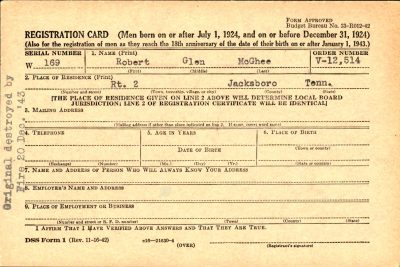 FORM APPROVED
Budget Bureau No. 33-R012-42
REGISTRATION CARD (Men born on or after July 1, 1924, and on or before December 31, 1924)
(Also for the registration of men as they reach the 18th anniversary of the date of their birth on or after January 1, 1943.)
SERIAL NUMBER 1. NAME (Print) ORDER NUMBER
W 169 Robert Glen McGhee V-12,514
(First) (Middle) (Last)
2. PLACE OF RESIDENCE (Print)
Rt. 2 Jacksboro Tenn.
(Number and street) (Town, township, village or city) (County) (State)
[THE PLACE OF RESIDENCE GIVEN ON LINE 2 ABOVE WILL DETERMINE LOCAL BOARD
JURISDICTION; LINE 2 OF REGISTRATION CERTIFICATE WILL BE IDENTICAL]
3. MAILING ADDRESS
(Mailing address if other than place indicated on line 2. If same, insert word same)
4. TELEPHONE 5. AGE IN YEARS 6. PLACE OF BIRTH
DATE OF BIRTH (Town or county)
(Exchange) (Number) (Mo.) (Day) (Yr.) (State or country)
7. NAME AND ADDRESS OF PERSON WHO WILL ALWAYS KNOW YOUR ADDRESS
8. EMPLOYER'S NAME AND ADDRESS
9. PLACE OF EMPLOYMENT OR BUSINESS
(Number and street or R. F. D. number) (Town) (County) (State)
I AFFIRM THAT I HAVE VERIFIED ABOVE ANSWERS AND THAT THEY ARE TRUE.
DSS Form 1 (Rev. 11-16-42) (OVER) (Registrant's signature)
Original destroyed by
Fire 20 Dec. '43